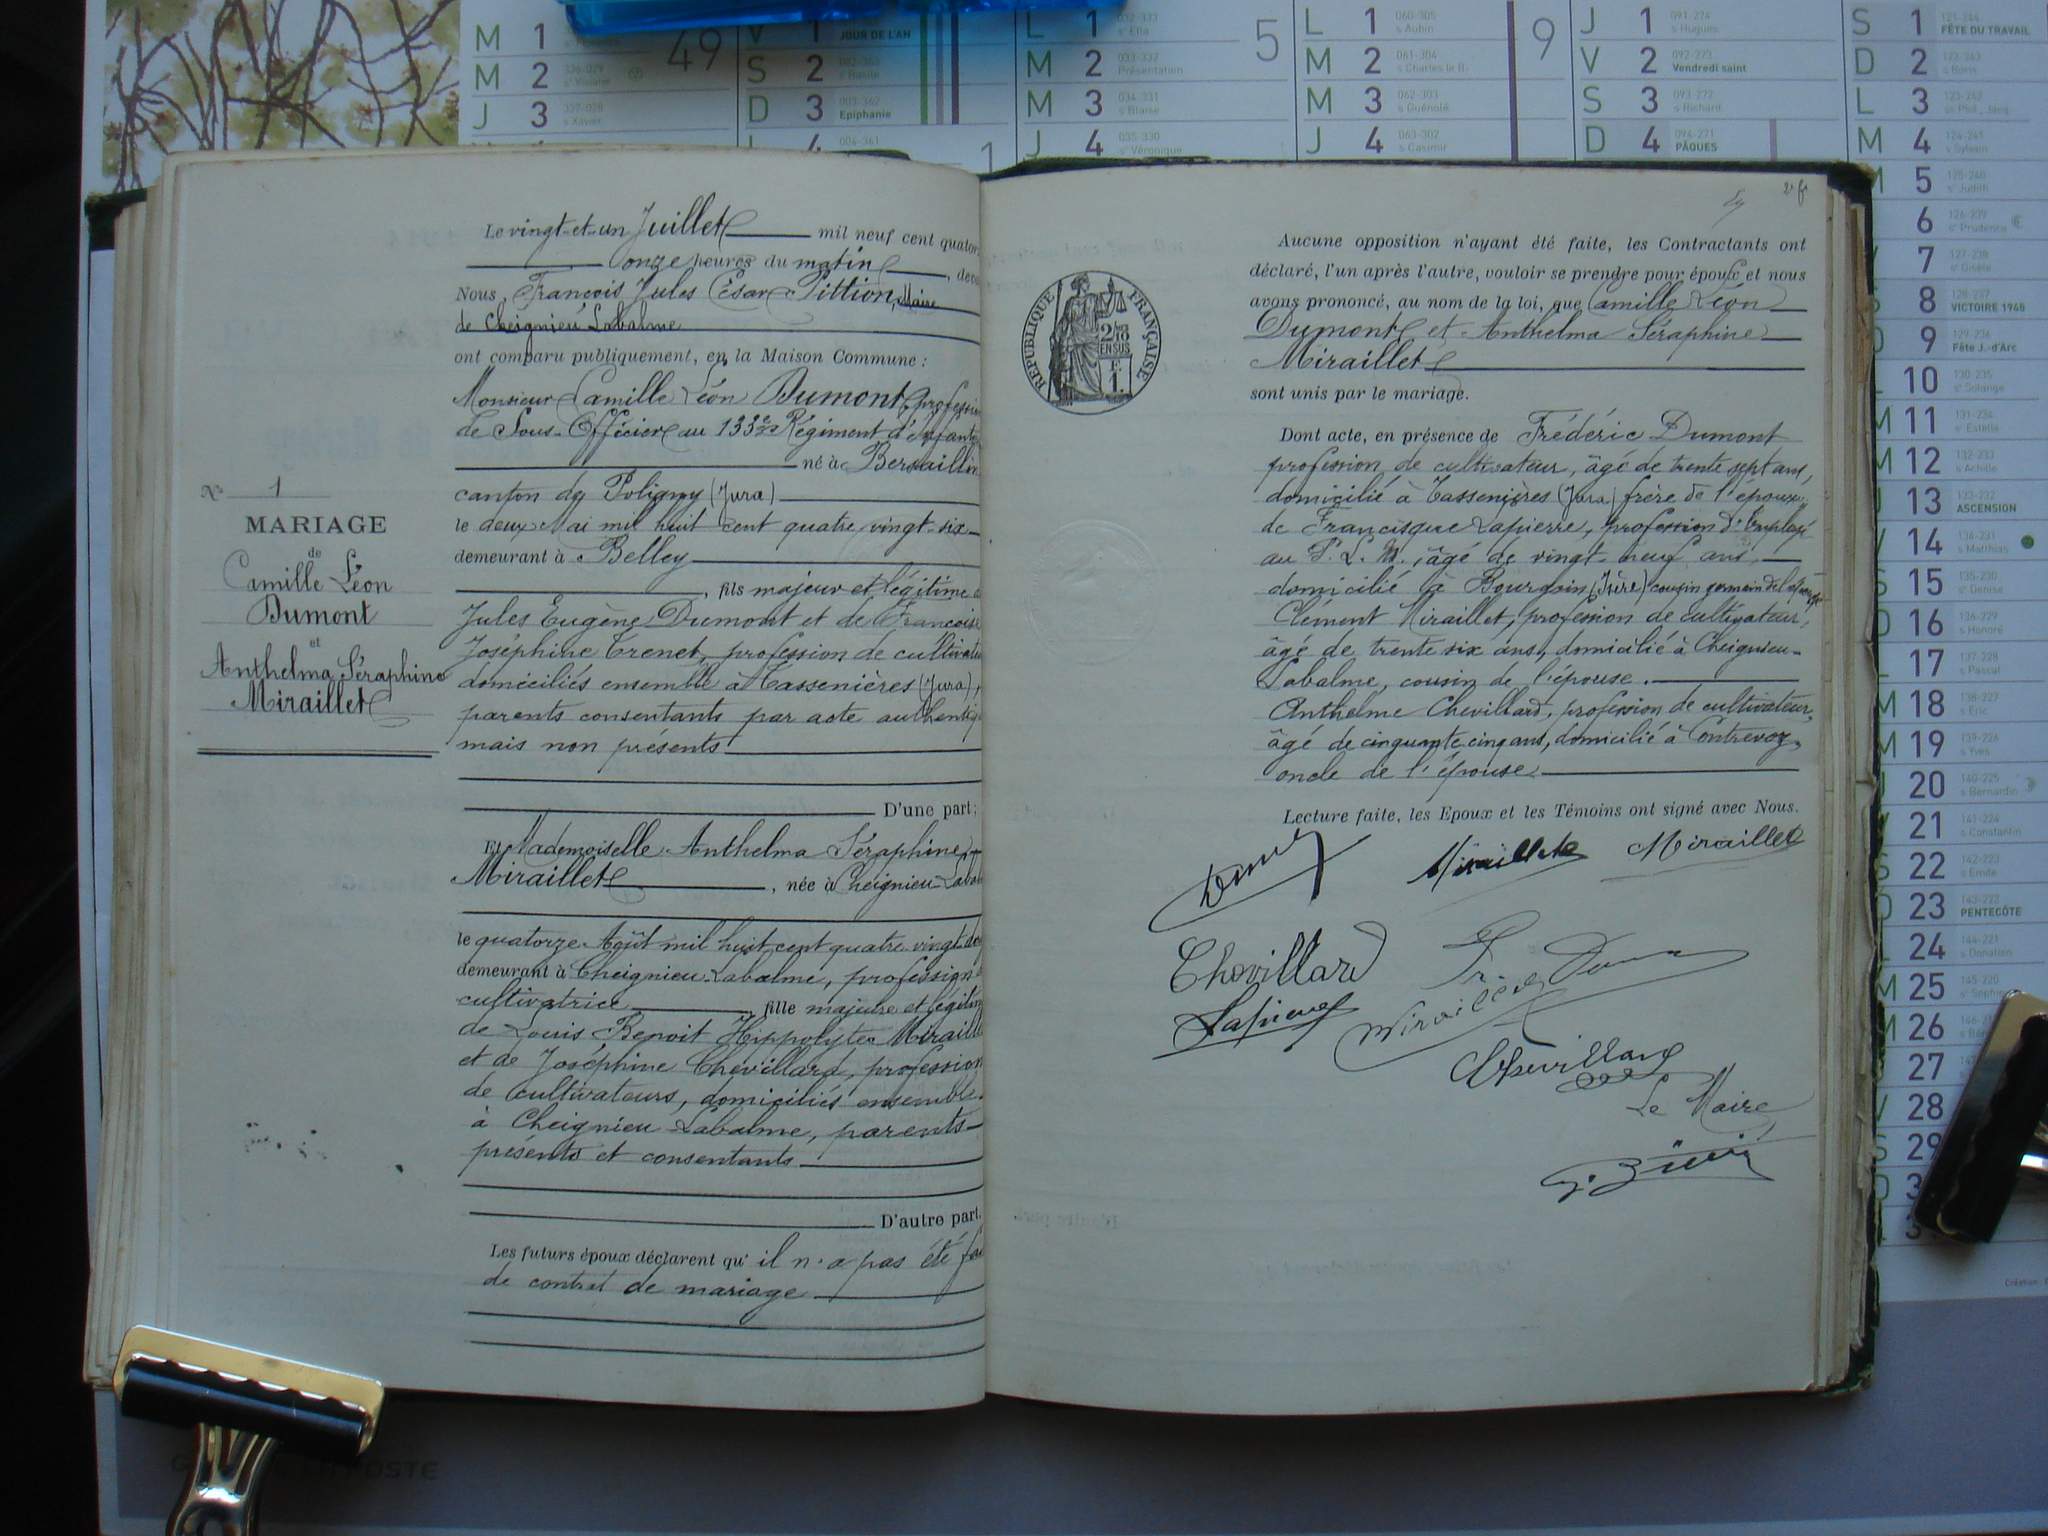 N° 1
MARIAGE
de
Camille Léon
Dumont
et
Anthelma Séraphine
Miraillet
Le vingt-et-un Juillet mil neuf cent quator
onze heures du matin, deva
Nous, François Jules César Pittion, Maire
de Cheignieu Labalme
ont comparu publiquement, en la Maison Commune :
Monsieur Camille Léon Dumont, profession
de Sous-Officier au 133e Régiment d'Infant
né à Bersaillin
canton de Poligny (Jura)
le deux Mai mil huit cent quatre vingt-six
demeurant à Belley
, fils majeur et légitime d
Jules Eugène Dumont et de Françoise
Joséphine Trenet, profession de cultivate
domiciliés ensemble à Tassenières (Jura),
parents consentants par acte authentiq
mais non présents
D'une part ;
Et Mademoiselle Anthelma Séraphine
Miraillet, née à Cheignieu-Labal
le quatorze Août mil huit cent quatre-vingt-do
demeurant à Cheignieu-Labalme, profession
cultivatrice, fille majeure et légitim
de Louis Benoit Hippolyte Miraill
et de Joséphine Chevillard, profession
de cultivateurs, domiciliés ensemble
à Cheignieu-Labalme, parents
présents et consentants
D'autre part.
Les futurs époux déclarent qu'il n'a pas été fai
de contrat de mariage
Aucune opposition n'ayant été faite, les Contractants ont
déclaré, l'un après l'autre, vouloir se prendre pour époux et nous
avons prononcé, au nom de la loi, que Camille Léon
Dumont et Anthelma Séraphine
Miraillet
sont unis par le mariage.
Dont acte, en présence de Frédéric Dumont
profession de cultivateur, âgé de trente sept ans,
domicilié à Tassenières (Jura) frère de l'époux,
de Francisque Lapierre, profession d'Employé
au P. L. M., âgé de vingt-neuf ans,
domicilié à Bourgoin (Isère) cousin germain de l'épouse
Clément Miraillet, profession de cultivateur,
âgé de trente six ans, domicilié à Cheignieu-
Labalme, cousin de l'épouse.
Anthelme Chevillard, profession de cultivateur,
âgé de cinquante cinq ans, domicilié à Contrevoz,
oncle de l'épouse
Lecture faite, les Epoux et les Témoins ont signé avec Nous.
Miraillet Miraillet
Chevillard
Lapierre
Miraillet
Chevillard
Le Maire
RÉPUBLIQUE FRANÇAISE
2/10
EN SUS
F.
1.
49
M 1
M 2
J 3
V 1 JOUR DE L'AN
S 2
D 3 Epiphanie
5
L 1
M 2 Présentation
M 3
J 4 s° Véronique
9
L 1 s Aubin
M 2 s Charles le B.
M 3 s Guénolé
J 4 s Casimir
J 1 s Hugues
V 2 Vendredi saint
S 3 s Richard
D 4 PÂQUES
S 1 FÊTE DU TRAVAIL
D 2 s Boris
L 3
M 4 s Sylvain
5 s° Judith
6 s° Prudence
7 s° Gisèle
8 VICTOIRE 1945
9 Fête J.-d'Arc
10 s° Solange
11 s° Estelle
12 s Achille
13 ASCENSION
14 s Matthias
15 s° Denise
16 s Honoré
17 s Pascal
18 s Eric
19 s Yves
20 s Bernardin
21 s Constantin
22 s Emile
23 PENTECÔTE
24 s Donatien
25
26
27
28
29